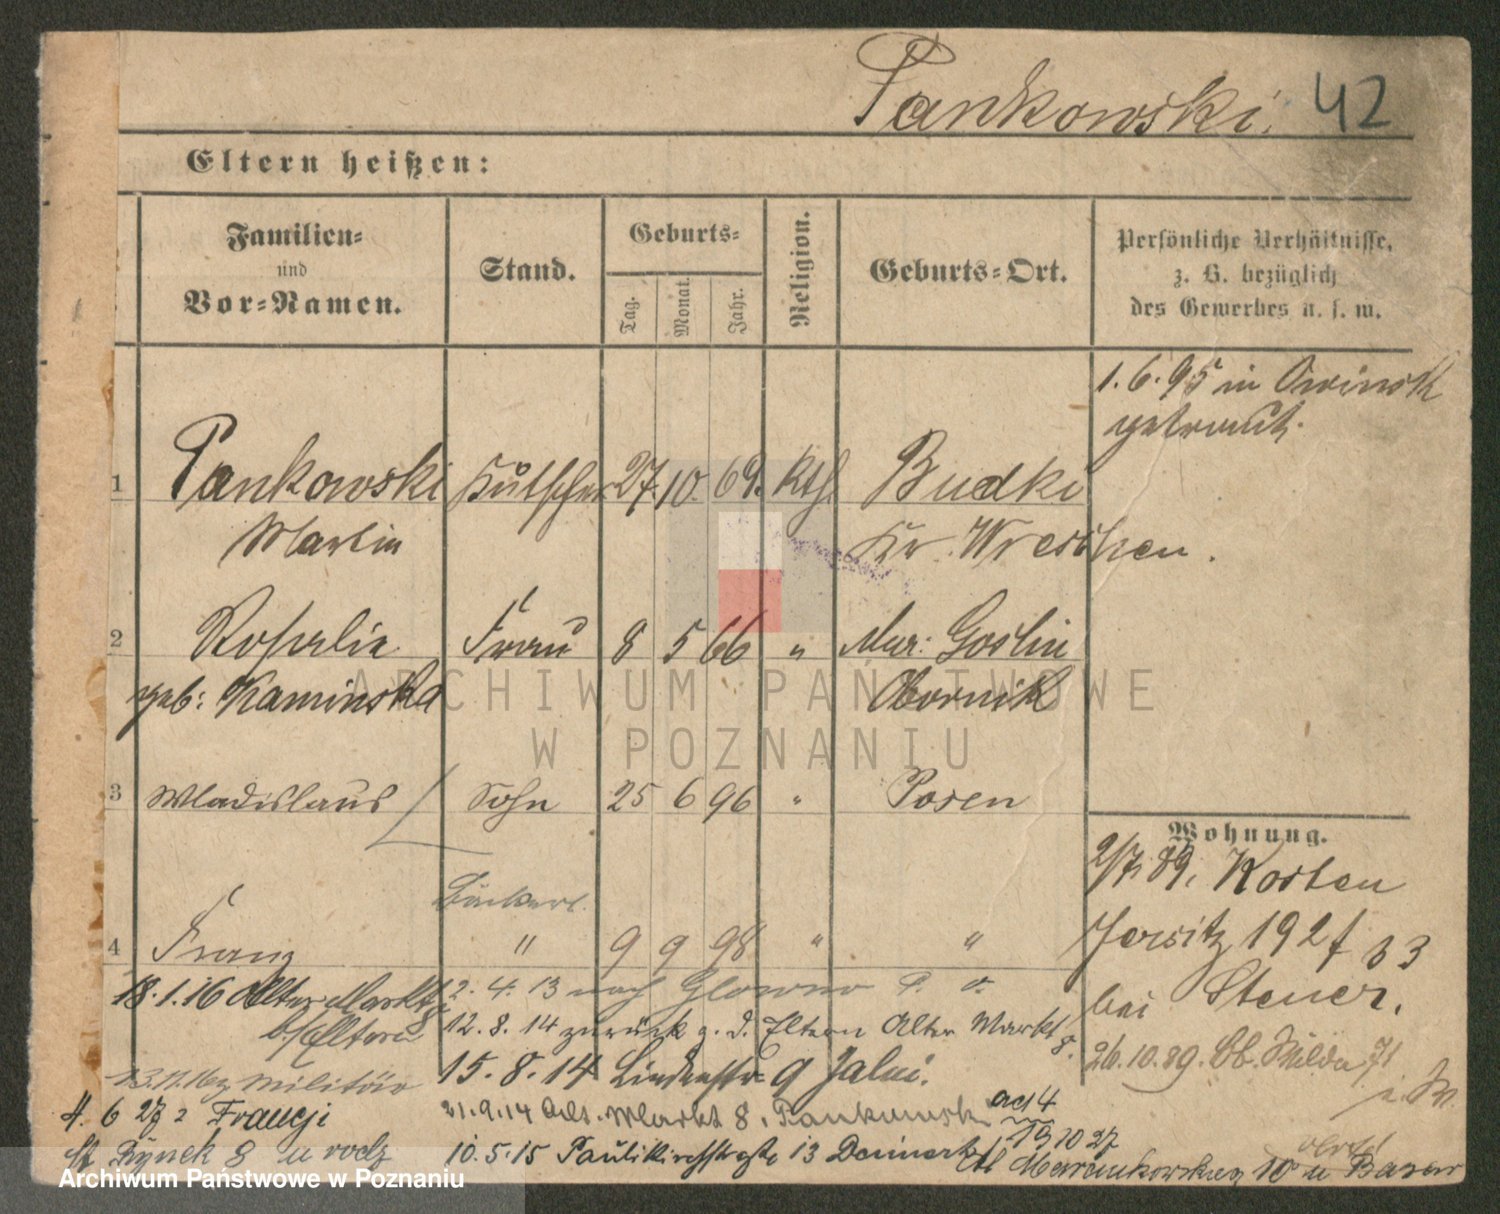 Pankowski. 42
Eltern heißen:
Familien-
und
Vor-Namen.
Stand.
Geburts-
Tag.
Monat.
Jahr.
Religion.
Geburts-Ort.
Persönliche Verhältnisse,
z. B. bezüglich
des Gewerbes u. s. w.
1.6.95 in Owinsk
getraut.
1 Pankowski Kutscher 27. 10. 69. Kth. Budki
Martin Kr. Wreschen.
2 Rosalie Frau 8 5 66 " Mur: Goslin
geb: Kaminska Obornik
3 Wladislaus Sohn 25 6 96 " Posen
Wohnung.
2/7. 89, Kosten
Bäckerl.
4 Franz " 9 9 98 " "
Jersitz 192
bei Steuer.
18.1.16 Alter Markt 8
b/Eltern
2.4.13 nach Glowno
12.8.14 zurück z. d. Eltern Alter Markt 8.
26.10.89. 71
15.8.14 Lindenstr 9
13.11.16 z Militär
4. 6 27 z Francji
21.9.14 Alt. Markt 8, Pankowski
ad 4
13 10 27
St Rynek 8 u rodz
10.5.15 Paulikirchstraße 13
10 u Bazar
ARCHIWUM PAŃSTWOWE
W POZNANIU
Archiwum Państwowe w Poznaniu